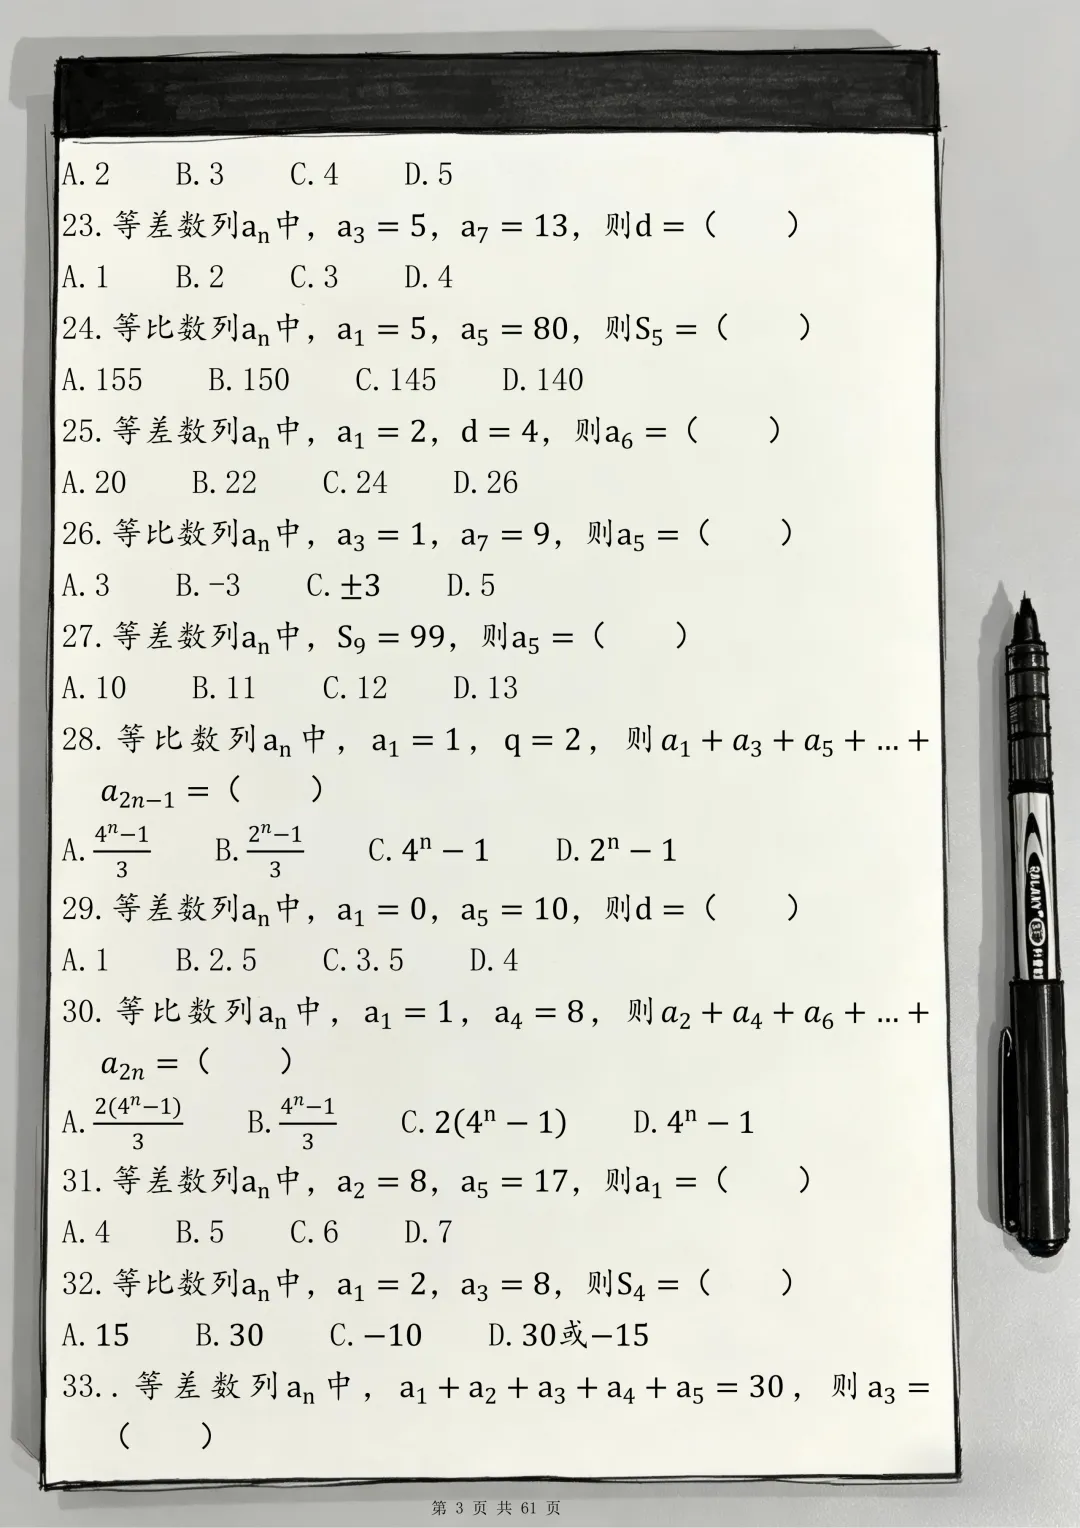 A.2 B.3 C.4 D.5
23.等差数列aₙ中，a₃ = 5，a₇ = 13，则d =（ ）
A.1 B.2 C.3 D.4
24.等比数列aₙ中，a₁ = 5，a₅ = 80，则S₅ =（ ）
A.155 B.150 C.145 D.140
25.等差数列aₙ中，a₁ = 2，d = 4，则a₆ =（ ）
A.20 B.22 C.24 D.26
26.等比数列aₙ中，a₃ = 1，a₇ = 9，则a₅ =（ ）
A.3 B.-3 C.±3 D.5
27.等差数列aₙ中，S₉ = 99，则a₅ =（ ）
A.10 B.11 C.12 D.13
28.等比数列aₙ中，a₁ = 1，q = 2，则a₁ + a₃ + a₅ + … +
a₂ₙ₋₁ =（ ）
A.(4ⁿ−1)/3 B.(2ⁿ−1)/3 C.4ⁿ − 1 D.2ⁿ − 1
29.等差数列aₙ中，a₁ = 0，a₅ = 10，则d =（ ）
A.1 B.2.5 C.3.5 D.4
30.等比数列aₙ中，a₁ = 1，a₄ = 8，则a₂ + a₄ + a₆ + … +
a₂ₙ =（ ）
A.2(4ⁿ−1)/3 B.(4ⁿ−1)/3 C.2(4ⁿ − 1) D.4ⁿ − 1
31.等差数列aₙ中，a₂ = 8，a₅ = 17，则a₁ =（ ）
A.4 B.5 C.6 D.7
32.等比数列aₙ中，a₁ = 2，a₃ = 8，则S₄ =（ ）
A.15 B.30 C.−10 D.30或−15
33..等差数列aₙ中，a₁ + a₂ + a₃ + a₄ + a₅ = 30，则a₃ =
（ ）
第 3 页 共 61 页